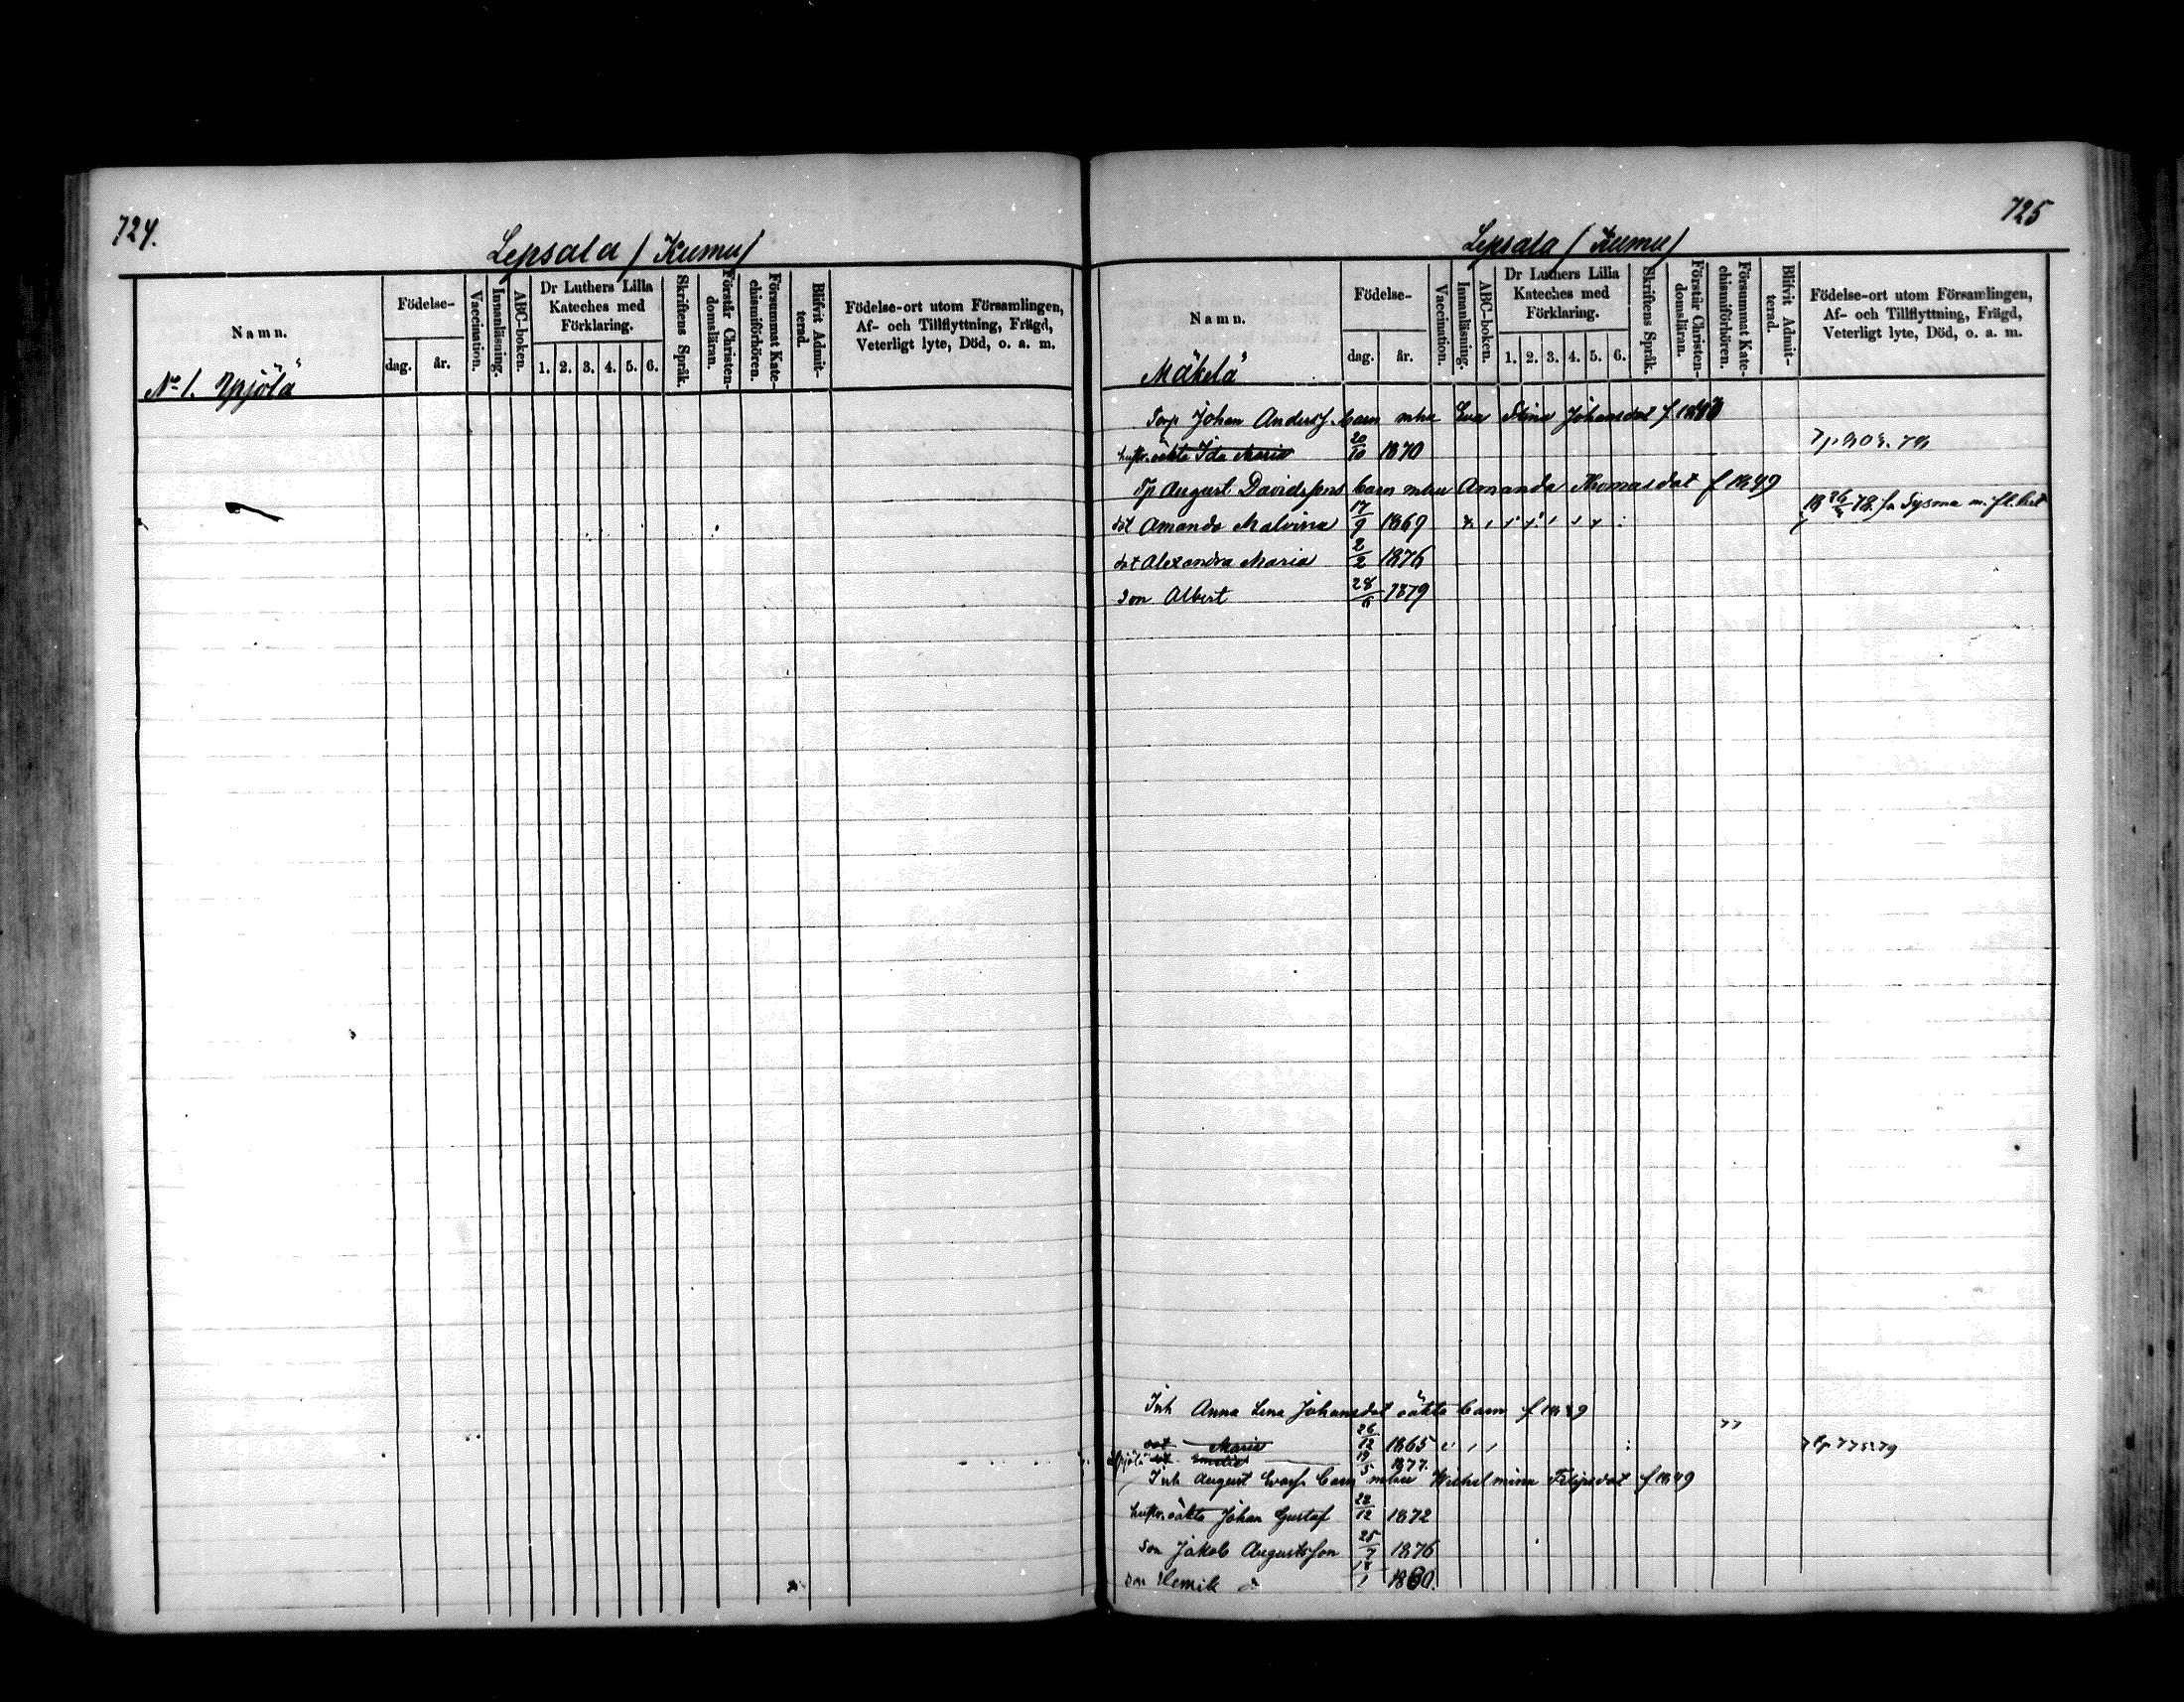 724.
Lepsala / Kumu /
Namn.
Födelse-
dag. år.
Vaccination.
Innanläsning.
ABC-boken.
Dr Luthers Lilla Kateches med Förklaring.
1. 2. 3. 4. 5. 6.
Skriftens Språk.
Förstår Christendomsläran.
Försummat Katechismiförhören.
Blifvit Admitterad.
Födelse-ort utom Församlingen,
Af- och Tillflyttning, Frägd,
Veterligt lyte, Död, o. a. m.
No 1. Ypjölä
725
Lepsala / Kumu /
Namn.
Födelse-
dag. år.
Vaccination.
Innanläsning.
ABC-boken.
Dr Luthers Lilla Kateches med Förklaring.
1. 2. 3. 4. 5. 6.
Skriftens Språk.
Förstår Christendomsläran.
Försummat Katechismiförhören.
Blifvit Admitterad.
Födelse-ort utom Församlingen,
Af- och Tillflyttning, Frägd,
Veterligt lyte, Död, o. a. m.
Mäkelä
Torp Johan Andersf. barn mhu Eva Stina Johansdot
hustr. oäkta Ida Maria 20/10 1870
Tp August Davidssons barn mhu Amanda Thomasdot f 1849
dot Amanda Malvina 17/9 1869 78 fr Sysmä m. fl. bet
dot Alexandra Maria 2/2 1876
son Albert 28/6 1879
Inh Anna Lena Johansdot oäkta barn
dot Maria 26/12 1865
dot Emelie 1877.
Inh August barn mhu Wilhelmina Filipsdot f 1849
hustr. oäkta Johan Gustaf 22/12 1872
son Jakob Augustsson 25/7 1876
son 1880.